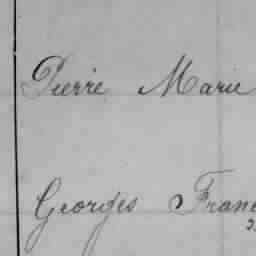 Pierre Marie
Georges Franc